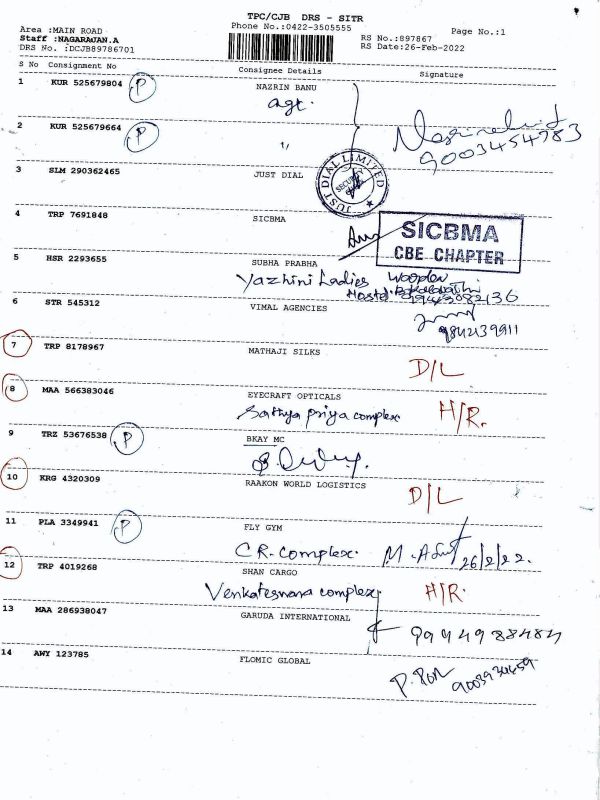 TPC/CJB DRS - SITR
Area :MAIN ROAD
Phone No.:0422-3505555
Page No.:1
Staff :NAGARAJAN.A
RS No.:897867
DRS No. :DCJB89786701
RS Date:26-Feb-2022
S No Consignment No Consignee Details Signature
1 KUR 525679804 P NAZRIN BANU
agt.
2 KUR 525679664 P
9003454783
3 SLM 290362465 JUST DIAL
JUST DIAL LIMITED
SECURITY
4 TRP 7691848 SICBMA
SICBMA
CBE CHAPTER
5 HSR 2293655 SUBHA PRABHA
Yazhini Ladies Hostel. Warden
99943082136
6 STR 545312 VIMAL AGENCIES
9842139911
7 TRP 8178967 MATHAJI SILKS
D/L
8 MAA 566383046 EYECRAFT OPTICALS
Sathya priya complex H/R.
9 TRZ 53676538 P BKAY MC
10 KRG 4320309 RAAKON WORLD LOGISTICS
D/L
11 PLA 3349941 P FLY GYM
C.R. Complex. 26/2/22.
12 TRP 4019268 SHAN CARGO
Venkateswara complex. H/R.
13 MAA 286938047 GARUDA INTERNATIONAL
9994988484
14 AWY 123785 FLOMIC GLOBAL
9003930459